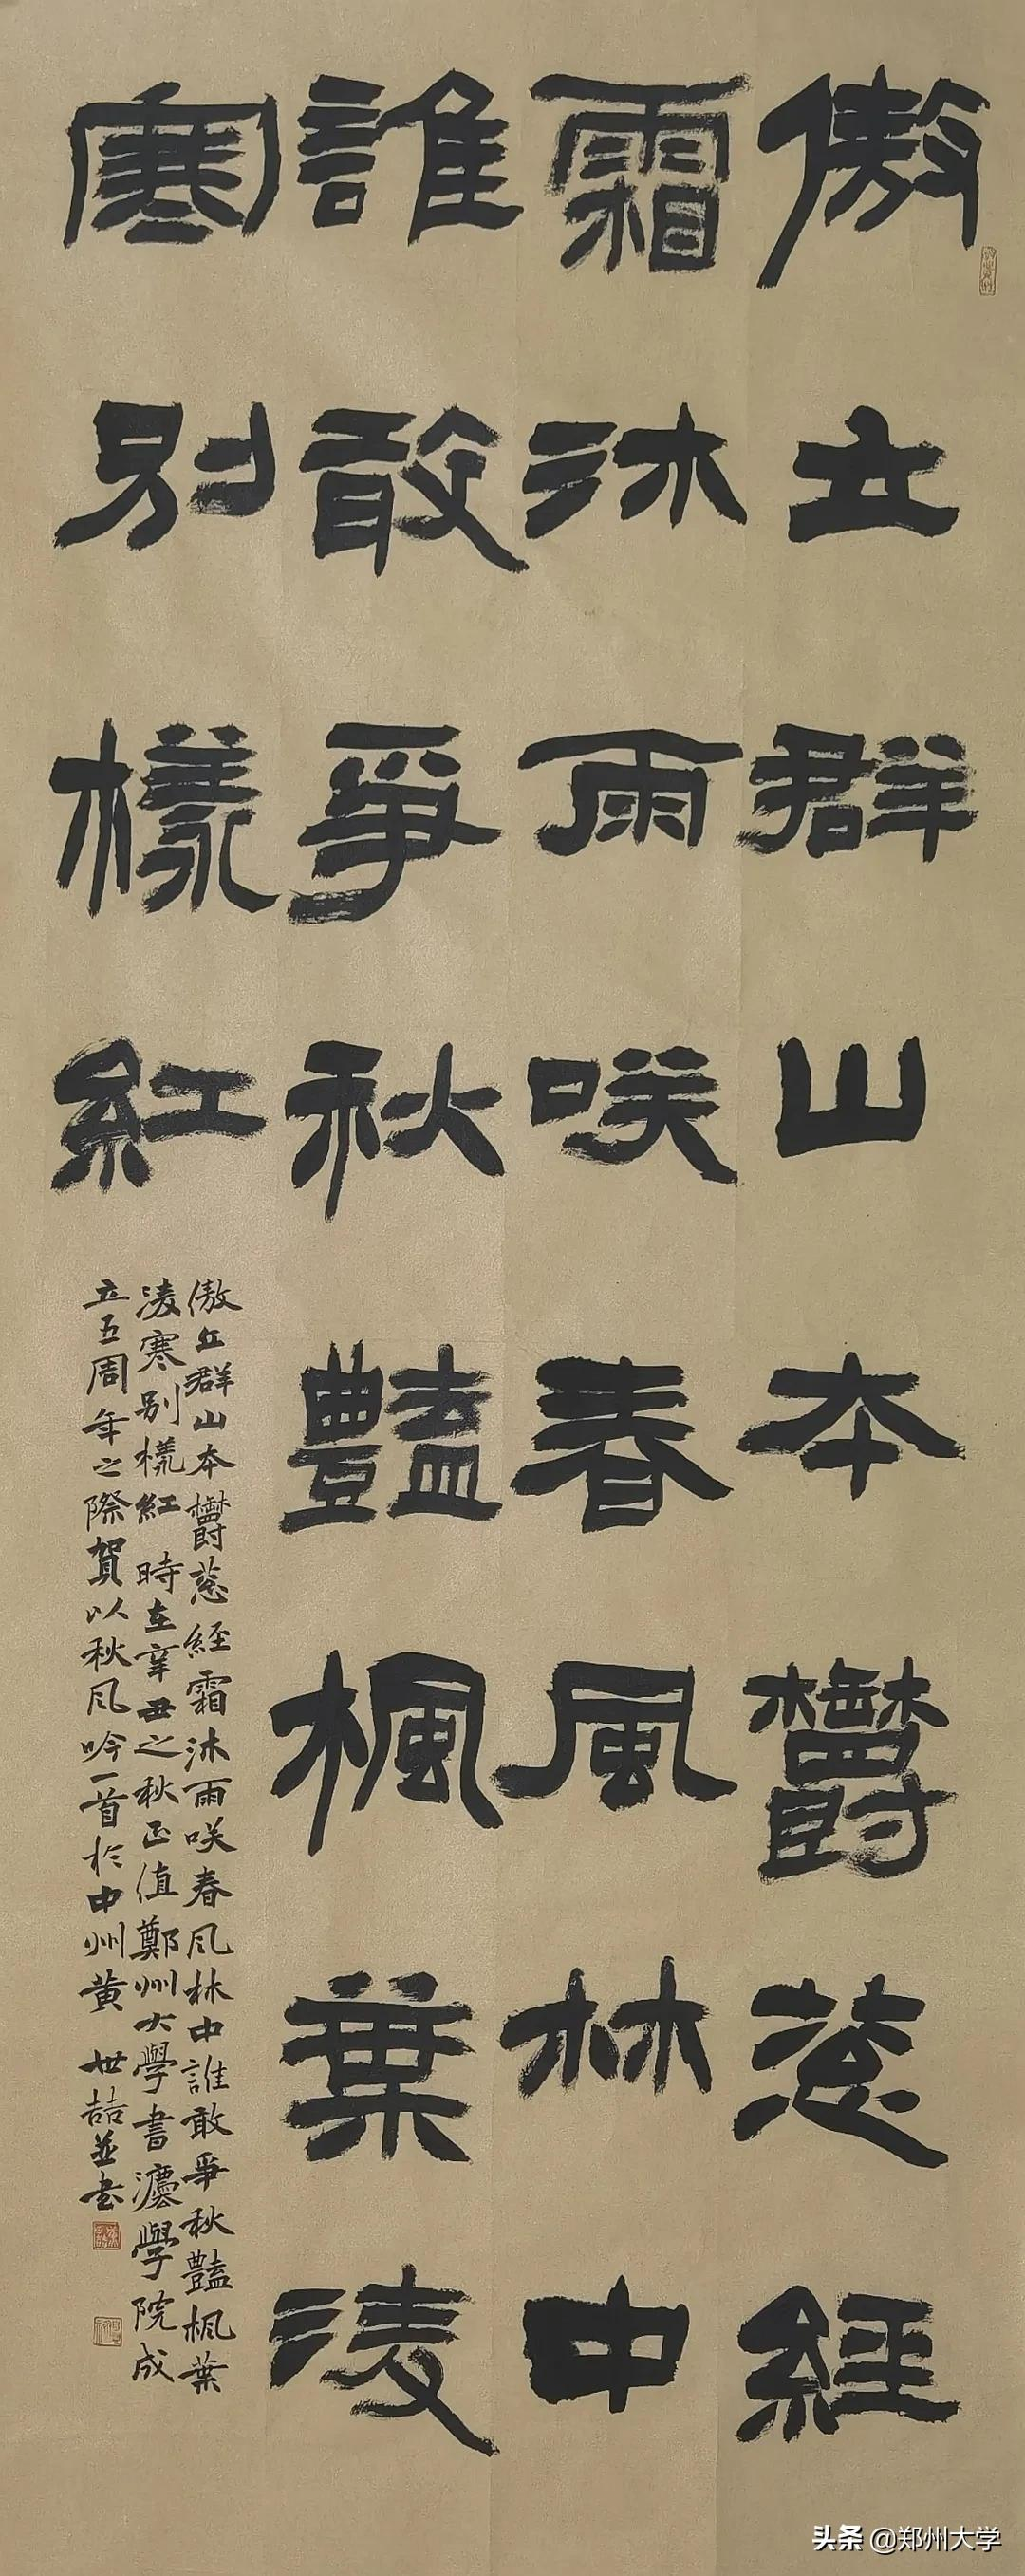 傲立群山本欝蔥經
霜沐雨咲春風林中
誰敢爭秋豔楓葉淩
寒別樣紅
傲立群山本欝蔥經霜沐雨咲春风林中誰敢爭秋豔枫葉
淩寒别樣紅 時在辛丑之秋正值鄭州大學書灋學院成
立五周年之際賀以秋风吟一首於中州黄世喆並书
头条 @郑州大学